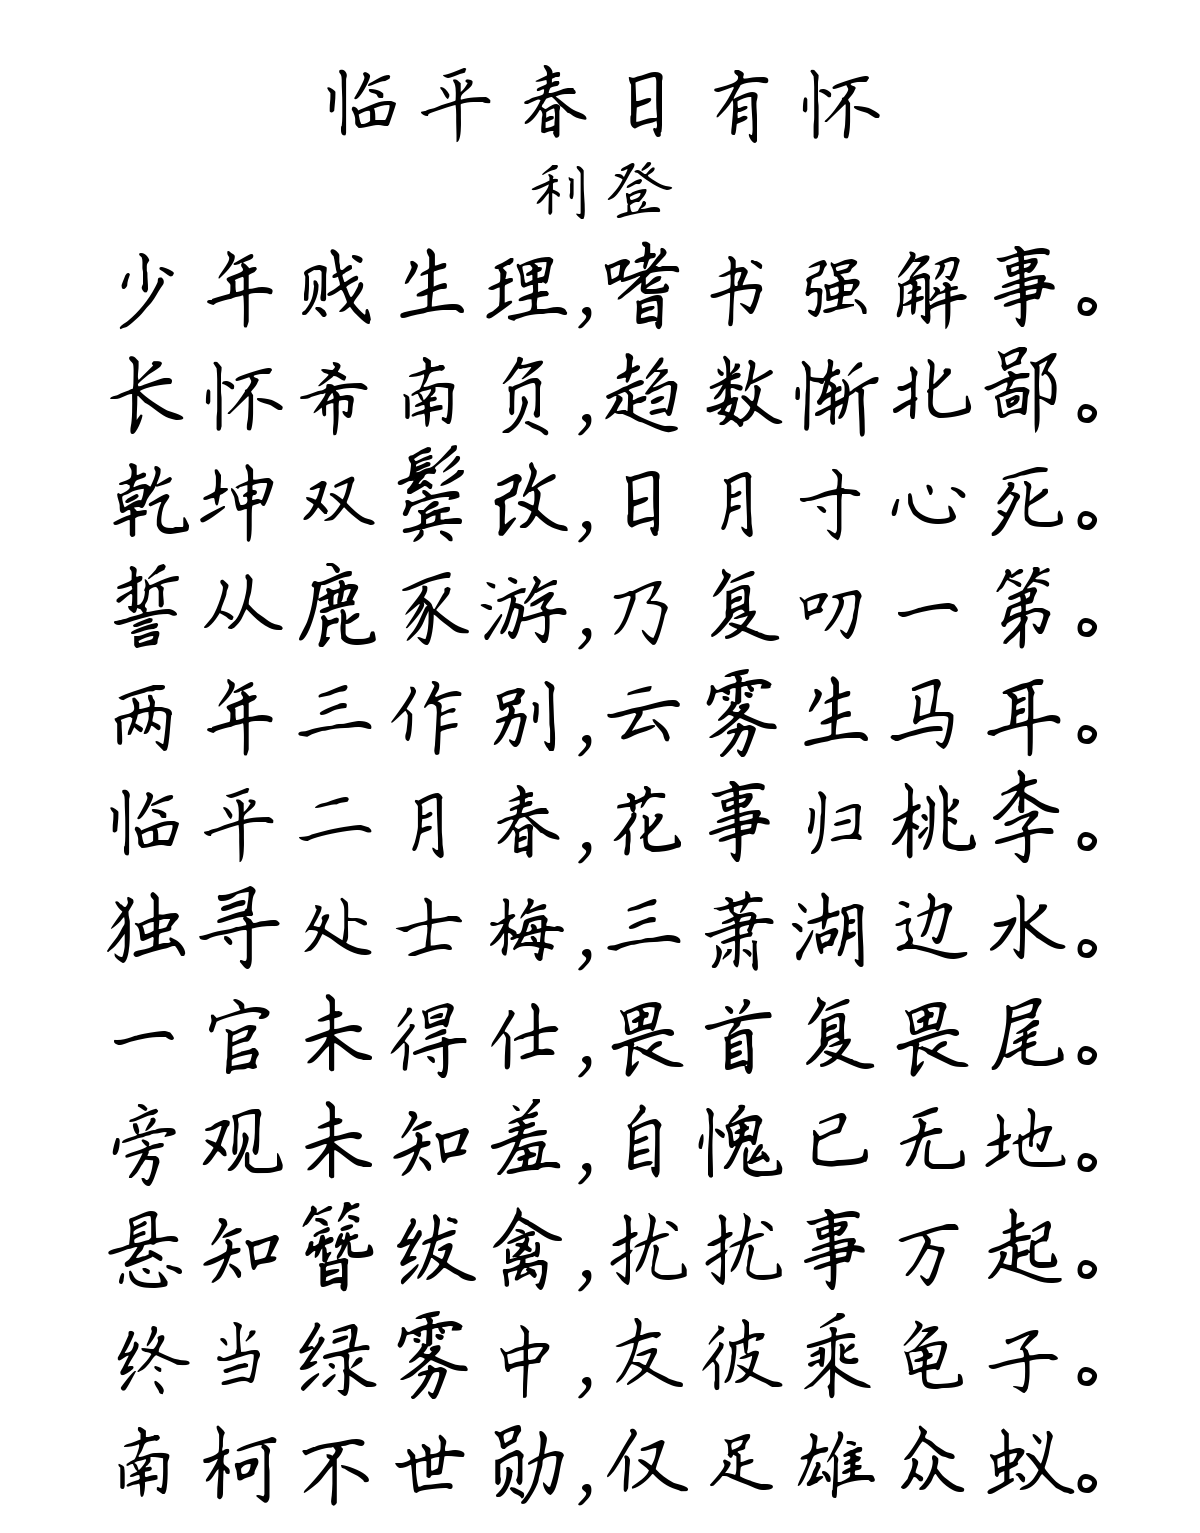 临平春日有怀
利登
少年贱生理,嗜书强解事。
长怀希南负,趋数惭北鄙。
乾坤双鬓改,日月寸心死。
誓从鹿豕游,乃复叨一第。
两年三作别,云雾生马耳。
临平二月春,花事归桃李。
独寻处士梅,三萧湖边水。
一官未得仕,畏首复畏尾。
旁观未知羞,自愧已无地。
悬知簪绂禽,扰扰事万起。
终当绿雾中,友彼乘龟子。
南柯不世勋,仅足雄众蚁。